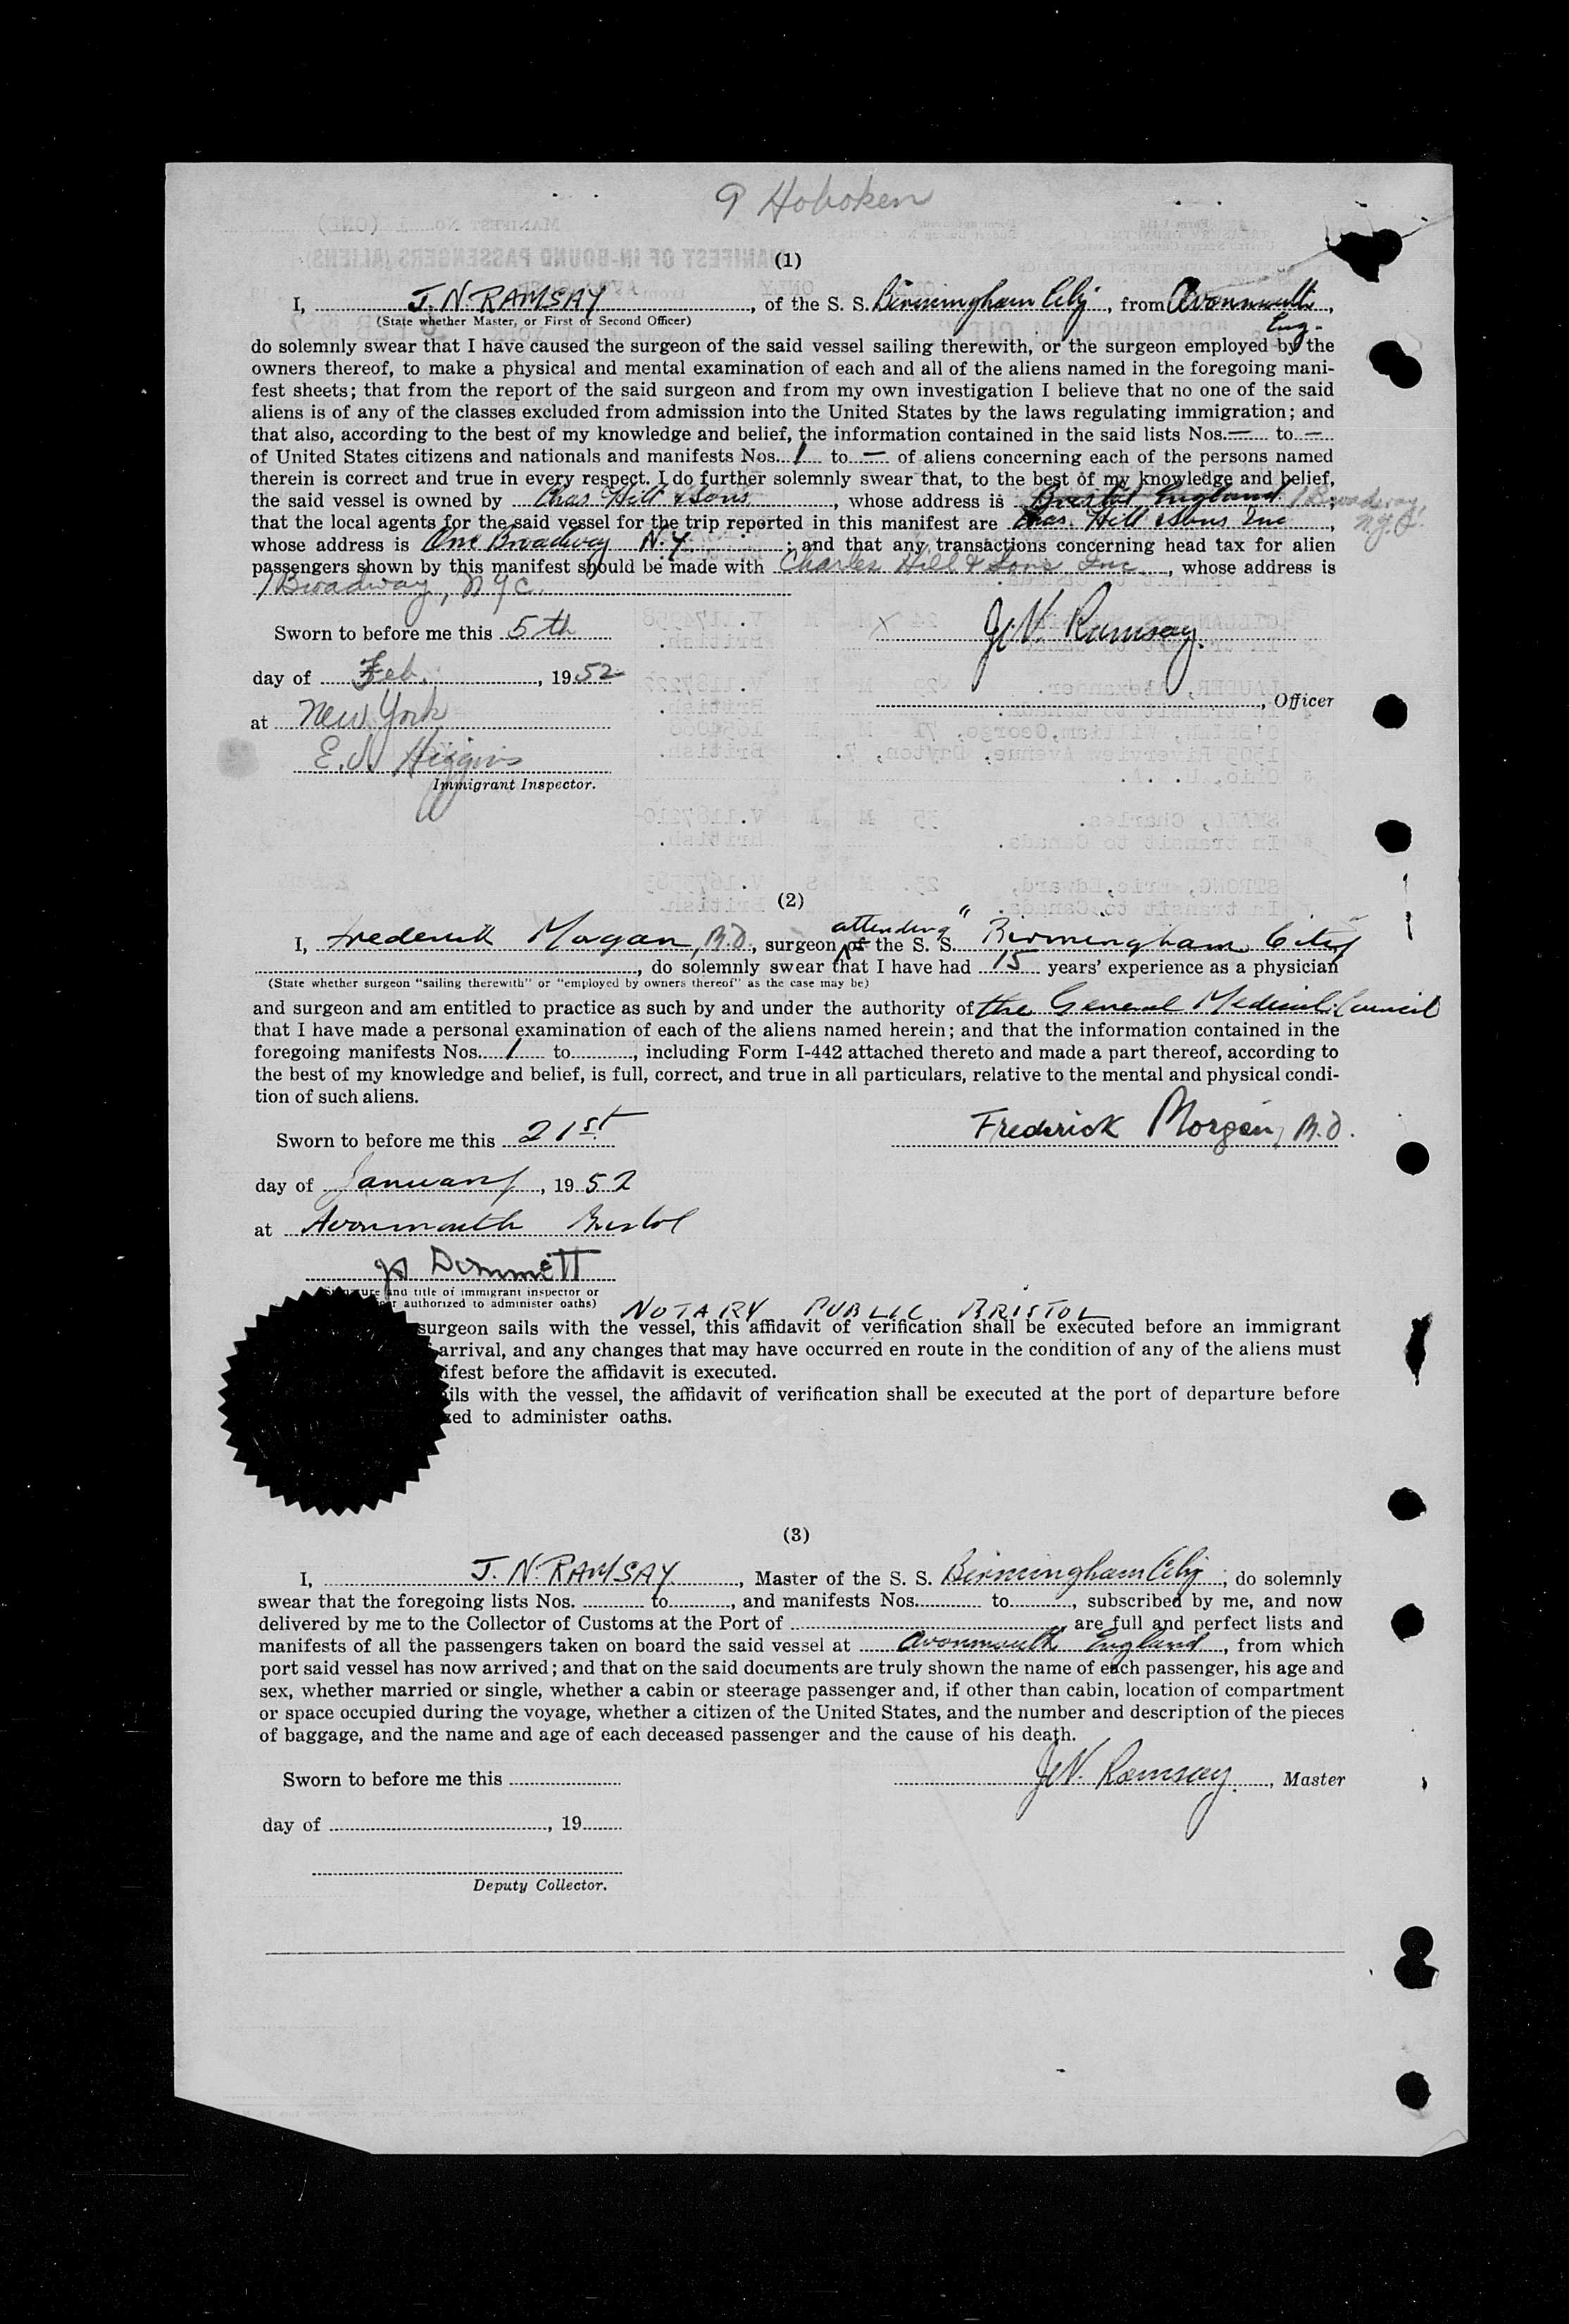 9 Hoboken
(1)
I, J. N. RAMSAY, of the S. S. Birmingham City, from Avonmouth,
(State whether Master, or First or Second Officer) Eng.
do solemnly swear that I have caused the surgeon of the said vessel sailing therewith, or the surgeon employed by the
owners thereof, to make a physical and mental examination of each and all of the aliens named in the foregoing mani-
fest sheets; that from the report of the said surgeon and from my own investigation I believe that no one of the said
aliens is of any of the classes excluded from admission into the United States by the laws regulating immigration; and
that also, according to the best of my knowledge and belief, the information contained in the said lists Nos. — to —
of United States citizens and nationals and manifests Nos. 1 to — of aliens concerning each of the persons named
therein is correct and true in every respect. I do further solemnly swear that, to the best of my knowledge and belief,
the said vessel is owned by Chas Hill & Sons, whose address is Bristol England / Broadway, N.Y.C.
that the local agents for the said vessel for the trip reported in this manifest are Chas. Hill & Sons Inc,
whose address is One Broadway N.Y.; and that any transactions concerning head tax for alien
passengers shown by this manifest should be made with Charles Hill & Sons Inc, whose address is
1 Broadway, NYC.
Sworn to before me this 5th X J. N. Ramsay.
day of Feb., 1952
, Officer
at New York
E. N. Higgins
Immigrant Inspector.
(2)
attending "
I, Frederick Morgan, M.D., surgeon of the S. S. Birmingham City
, do solemnly swear that I have had 15 years' experience as a physician
(State whether surgeon "sailing therewith" or "employed by owners thereof" as the case may be)
and surgeon and am entitled to practice as such by and under the authority of the General Medical Council
that I have made a personal examination of each of the aliens named herein; and that the information contained in the
foregoing manifests Nos. 1 to , including Form I-442 attached thereto and made a part thereof, according to
the best of my knowledge and belief, is full, correct, and true in all particulars, relative to the mental and physical condi-
tion of such aliens.
Sworn to before me this 21st Frederick Morgan, M.D.
day of January, 1952
at Avonmouth Bristol
Dommett
and title of immigrant inspector or
authorized to administer oaths) NOTARY PUBLIC BRISTOL
surgeon sails with the vessel, this affidavit of verification shall be executed before an immigrant
arrival, and any changes that may have occurred en route in the condition of any of the aliens must
ifest before the affidavit is executed.
ils with the vessel, the affidavit of verification shall be executed at the port of departure before
zed to administer oaths.
(3)
I, J. N. RAMSAY, Master of the S. S. Birmingham City, do solemnly
swear that the foregoing lists Nos. to , and manifests Nos. to , subscribed by me, and now
delivered by me to the Collector of Customs at the Port of are full and perfect lists and
manifests of all the passengers taken on board the said vessel at Avonmouth England, from which
port said vessel has now arrived; and that on the said documents are truly shown the name of each passenger, his age and
sex, whether married or single, whether a cabin or steerage passenger and, if other than cabin, location of compartment
or space occupied during the voyage, whether a citizen of the United States, and the number and description of the pieces
of baggage, and the name and age of each deceased passenger and the cause of his death.
Sworn to before me this J. N. Ramsay., Master
day of , 19
Deputy Collector.